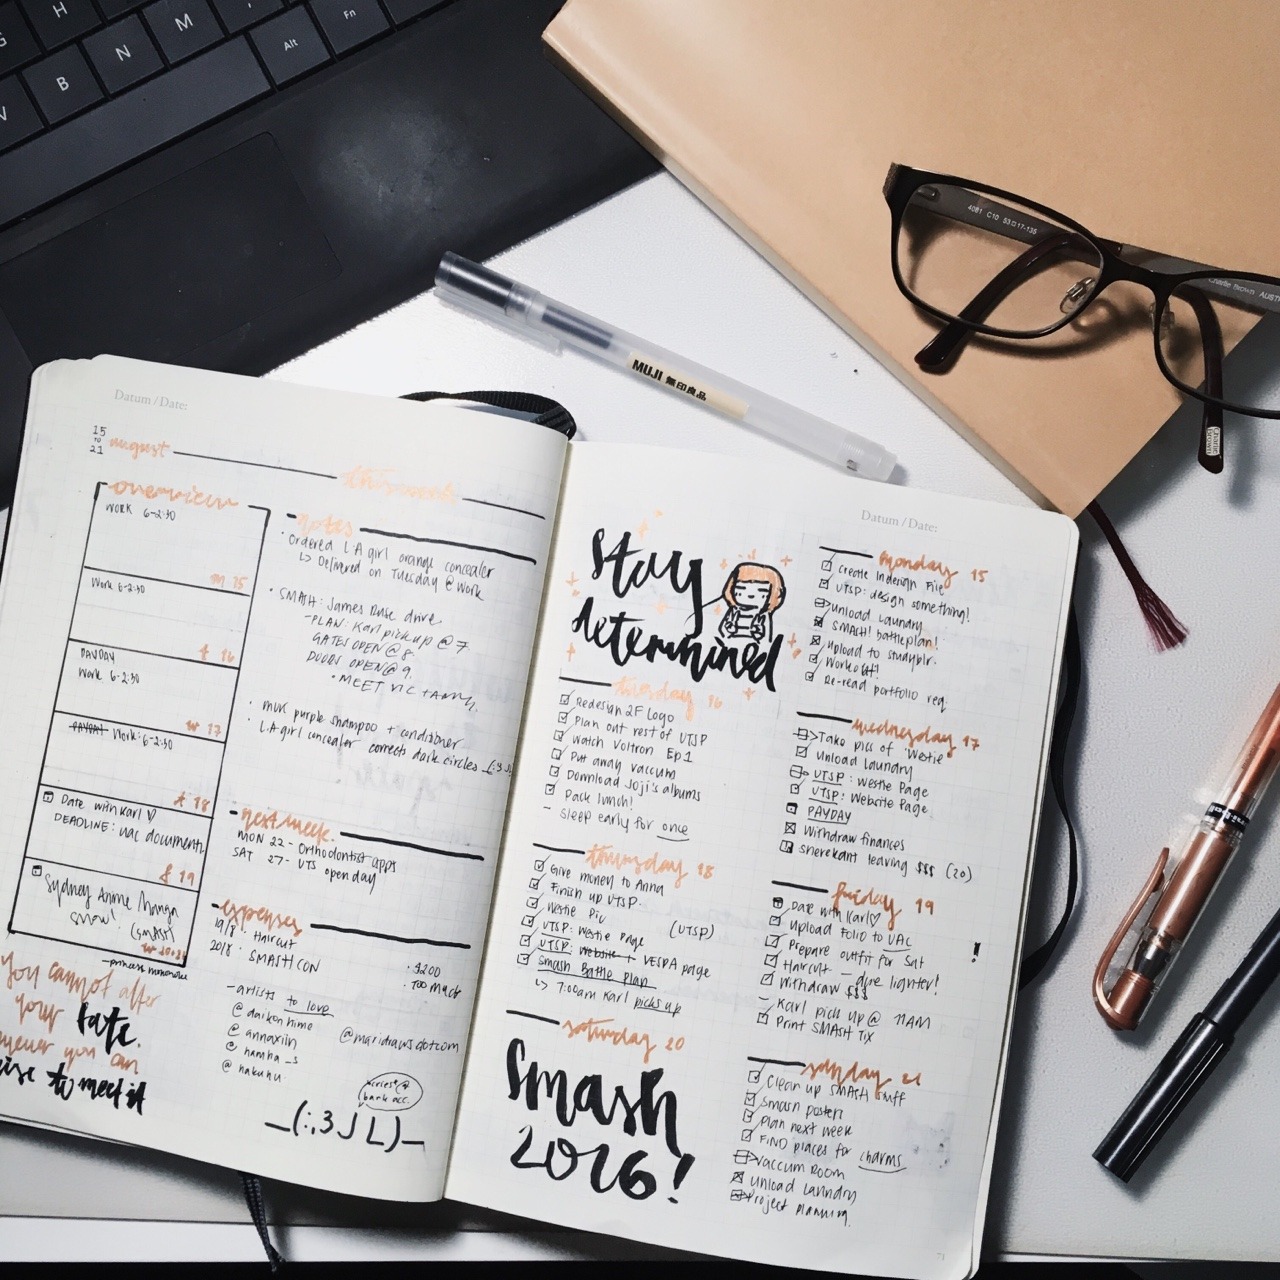 H
G
N
M
B
V
Alt
Fn
4081 C10 53□17-135
Charlie Brown AUST
Charlie Brown
MUJI 無印良品
Datum / Date:
15
TO
21
august
this week
overview
WORK 6-2:30
M 15
Work 6-2:30
t 16
PAYDAY
Work 6-2:30
w 17
PAYDAY Work: 6-2:30
t 18
Date with Karl ♡
DEADLINE: UAC documents
f 19
Sydney Anime Manga
show!
(SMASH)
20+21
- princess mononoke
you cannot alter
your fate.
however you can
rise to meet it
notes
• Ordered L.A girl orange concealer
↳ Delivered on Tuesday @ Work
• SMASH: James Ruse drive
- PLAN: Karl pick up @ 7
GATES OPEN @ 8
DOORS OPEN @ 9
• MEET VIC + 
• muk purple shampoo + conditioner
• L.A girl concealer corrects dark circles _(:3J
next week
MON 22 - Orthodontist apps
SAT 27 - UTS
open day
expenses
19/8 • Haircut
20/8 • SMASH CON
• $200
• too much
- artists to love
@ daikonhime
@ annaxiin
@ hamba_s
@ nakuhu
@maridrawsdotcom
*cries* @
bank acc.
_(:,3 J L)_
Datum / Date:
stay
determined
monday 15
Create Indesign File
UTSP: design something!
Unload Laundry
SMASH! battleplan!
Upload to studyblr.
Workout!
Re-read portfolio req.
tuesday 16
Redesign 2F Logo
Plan out rest of UTSP
Watch Voltron Ep 1
Put away vaccum
Download Joji's albums
Pack lunch!
- Sleep early for once
wednesday 17
Take pics of 'Westie'
Unload Laundry
UTSP: Westie Page
UTSP: Website Page
PAYDAY
Withdraw finances
Sherekant leaving $$$ (20)
thursday 18
Give money to Anna
Finish up UTSP.
Westie Pic
UTSP: Westie Page (UTSP)
UTSP: Website + VESPA page
Smash Battle Plan
↳ 7:00am Karl picks up
friday 19
Date with Karl ♡
Upload Folio to UAC !
Prepare outfit for Sat
Haircut - dye lighter!
Withdraw $$$
- Karl pick up @ 11AM
Print SMASH Tix
saturday 20
Smash
2016!
sunday 21
Clean up SMASH stuff
Smash posters
Plan next week
FIND places for charms
Vaccum Room
Unload Laundry
Project planning.